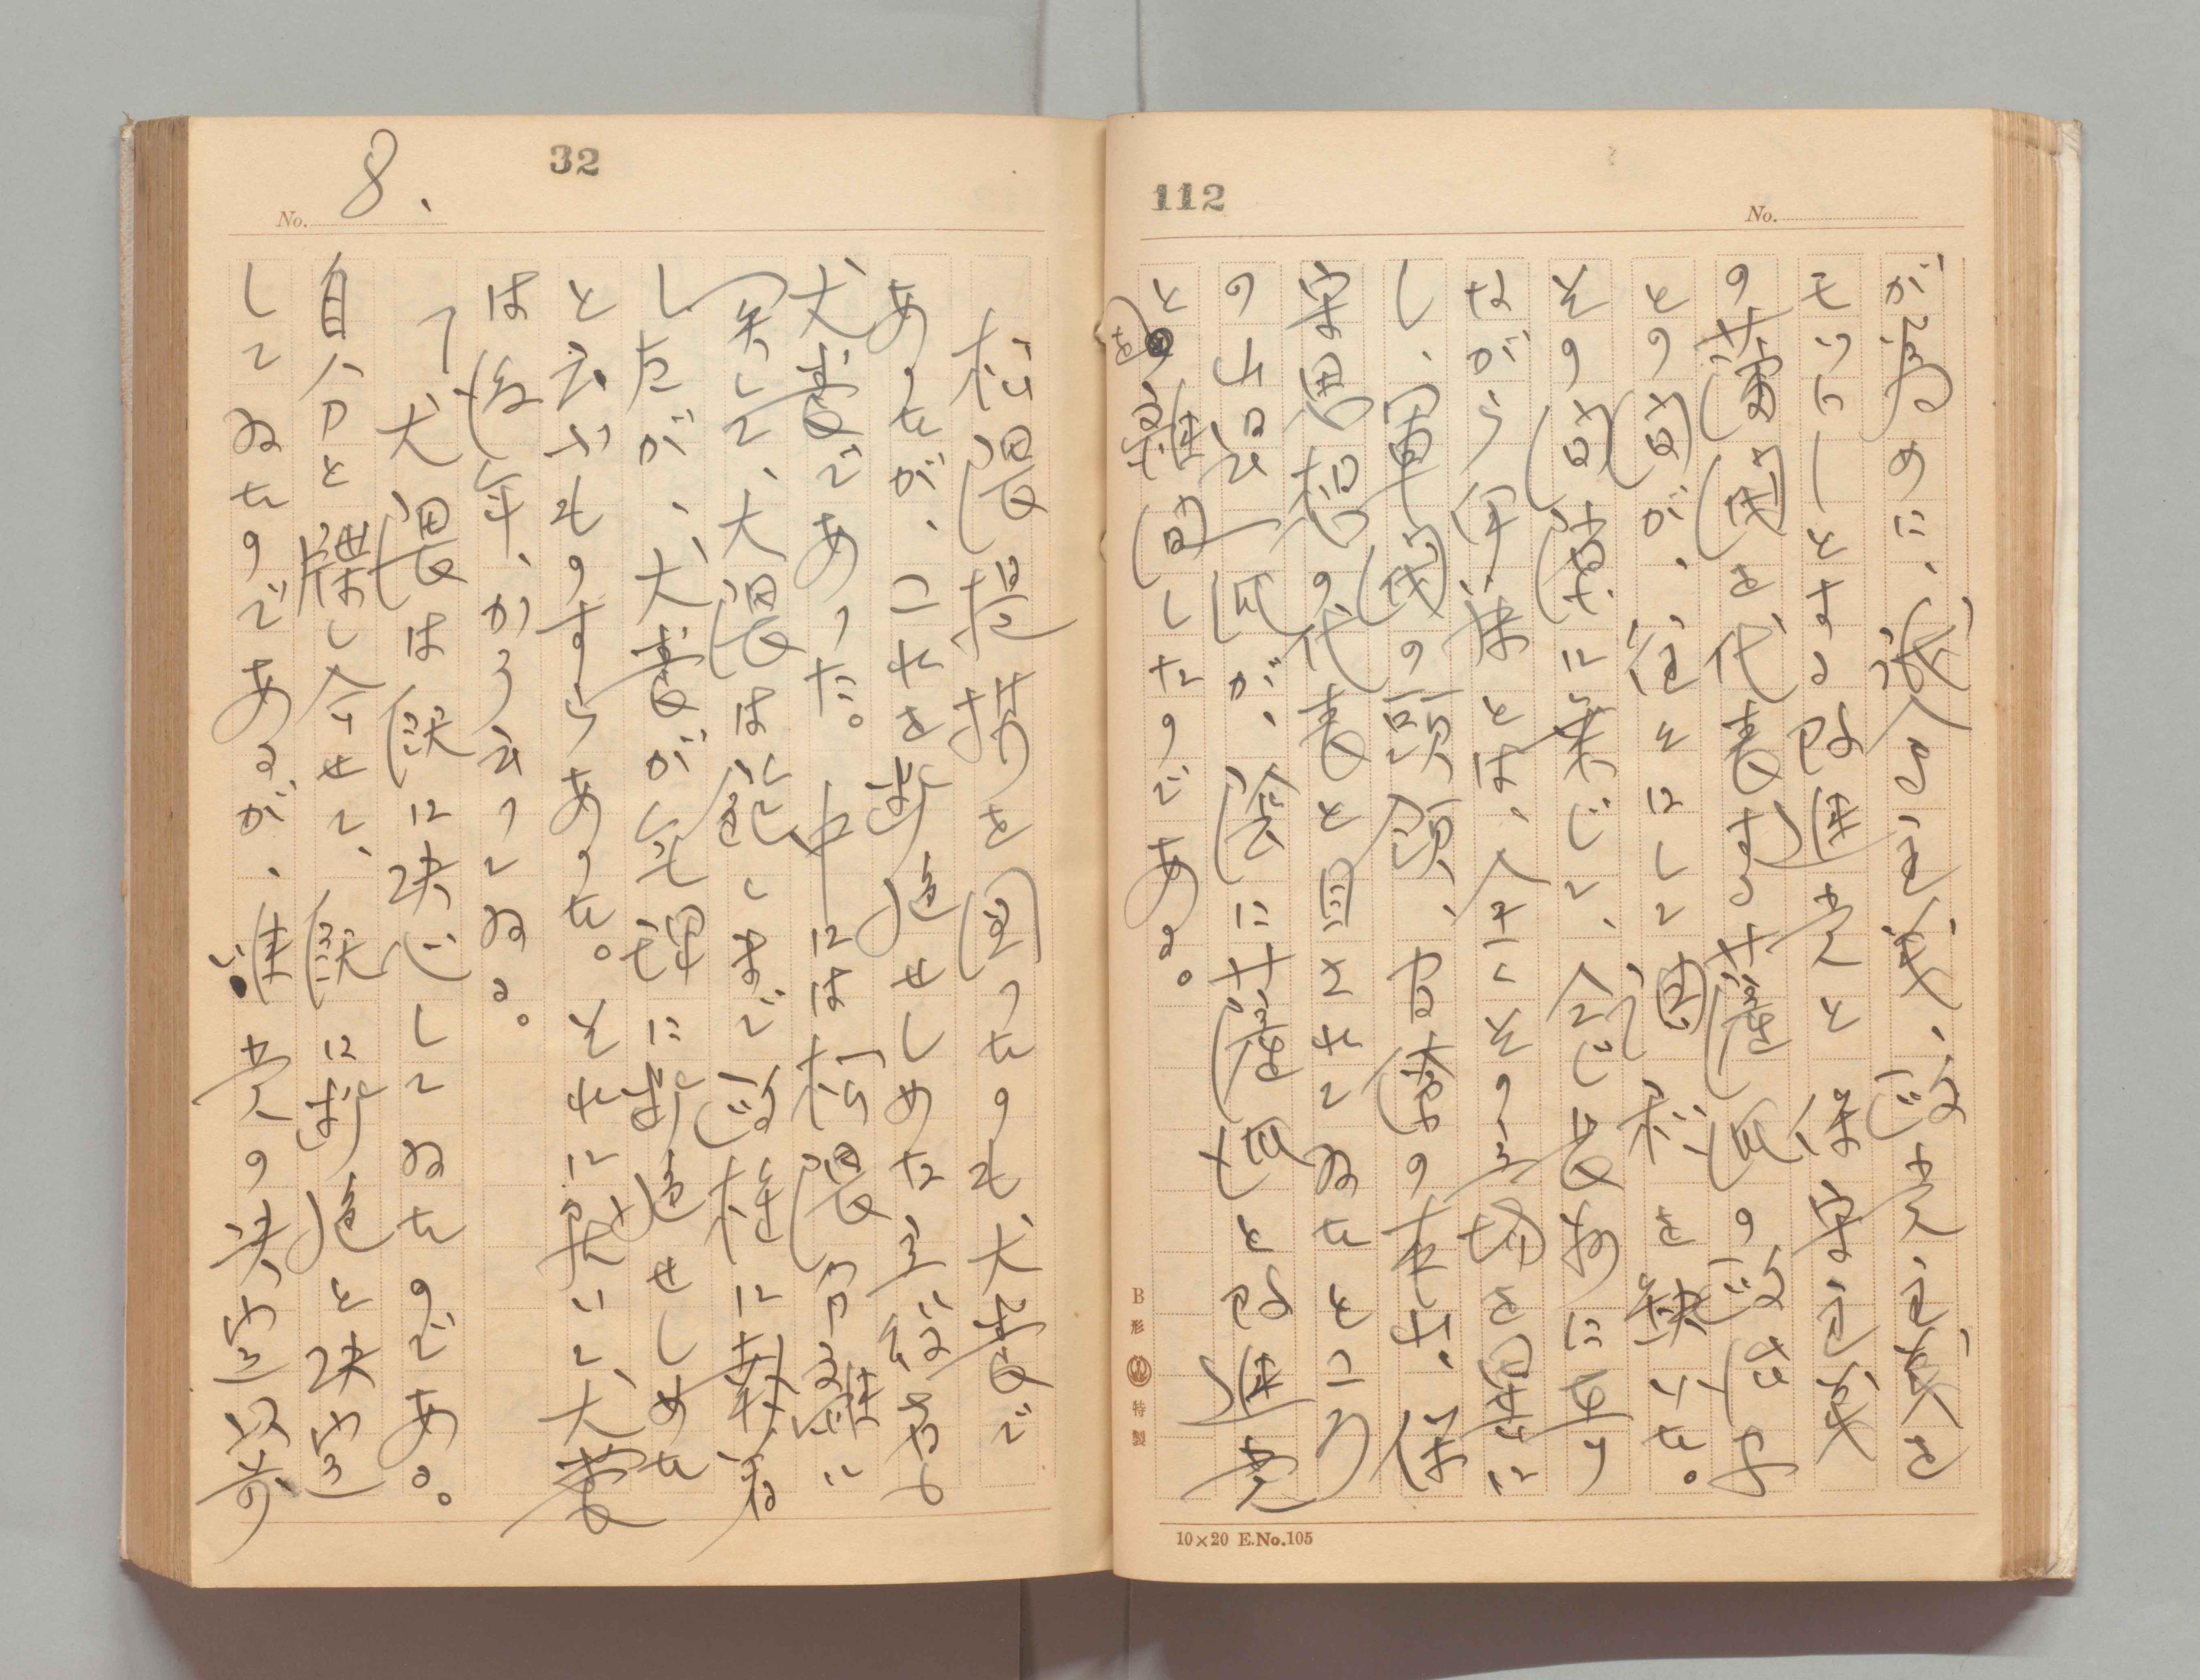 112
No.
が為めに、議会主義、政党主義を
モットーとする改進党と保守主義
の薩閥を代表する薩派の政治家
との間が、往々にして円かを缺いた。
その間隙に乗じて、今じ長州に有り
ながら伊藤とは、全くその立場を異に
し、軍閥の頭領、官僚の本尊、保
守思想の代表と目されてゐたところ
の山県一派が、陰に薩派と改進党
とを離間したのである。
B形 特製
10×20 E.No.105
32
No. 8.
松隈提携を図つたのも犬養で
あつたが、これを断絶せしめた立役者も
犬養であつた。中には松隈分離に
関して、大隈は飽くまで政権に恋着
したが、犬養が無理に断絶せしめた
と云ふものすらあつた。それに就いて、犬養
は後年、かう云つてゐる。
「大隈は既に決心してゐたのである。
自分と牒し合せて、既に断絶と決定
してゐたのであるが、唯党の決定以前